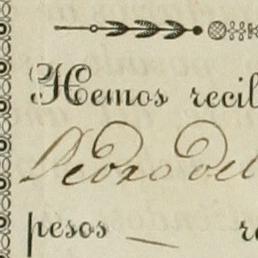 Hemos recib
Pedro del
pesos — re